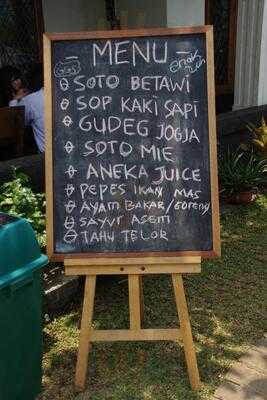 MENU
SOTO BETAWI
SOP KAKI SAPI
GUDEG JOGJA
SOTO MIE
ANEKA JUICE
PEPES IKAN MAS
AYAM BAKAR/Goreng
SAYUR ASEM
TAHU TELOR